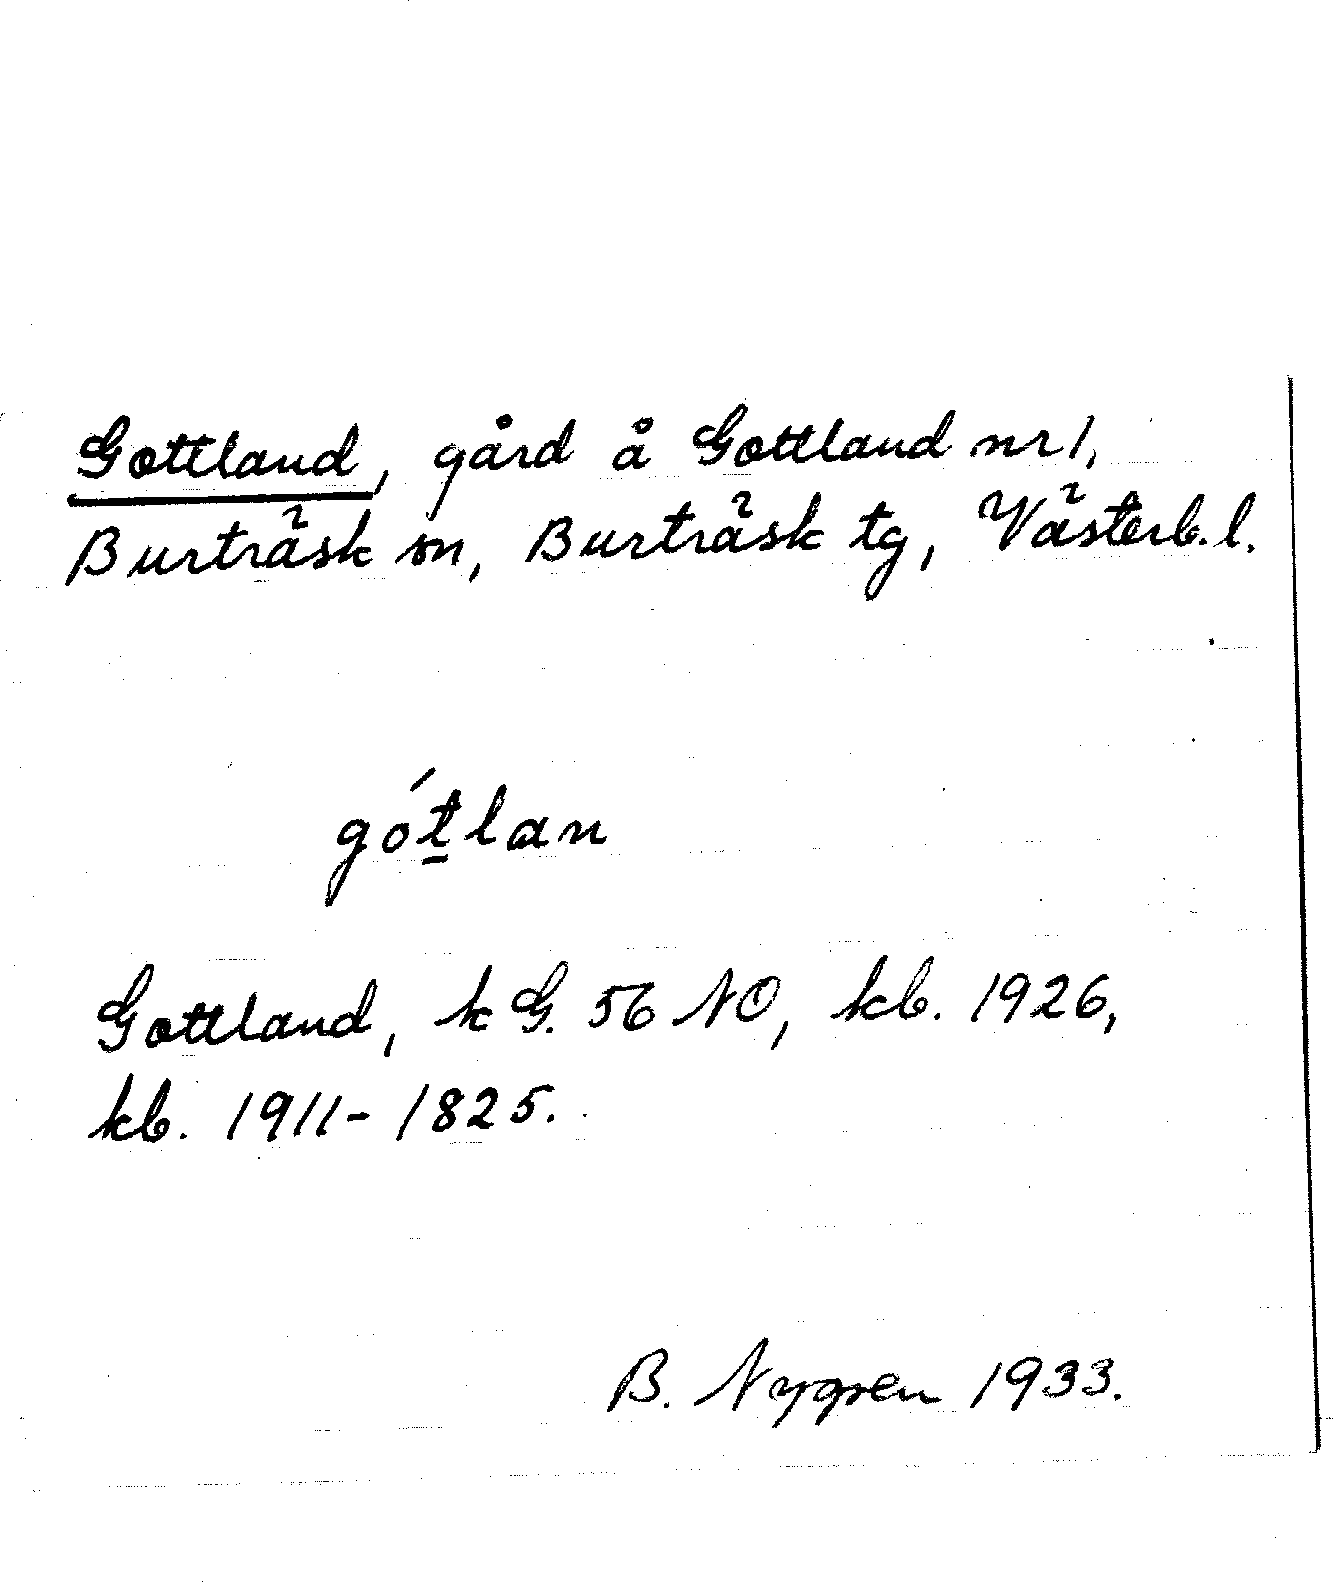 Gottland, gård å Gottland nr 1,
Burträsk sn, Burträsk tg, Västerb. l.
gót̲lan
Gottland, k G. 56 NO, kb. 1926,
kb. 1911- 1825.
B. Nygren 1933.